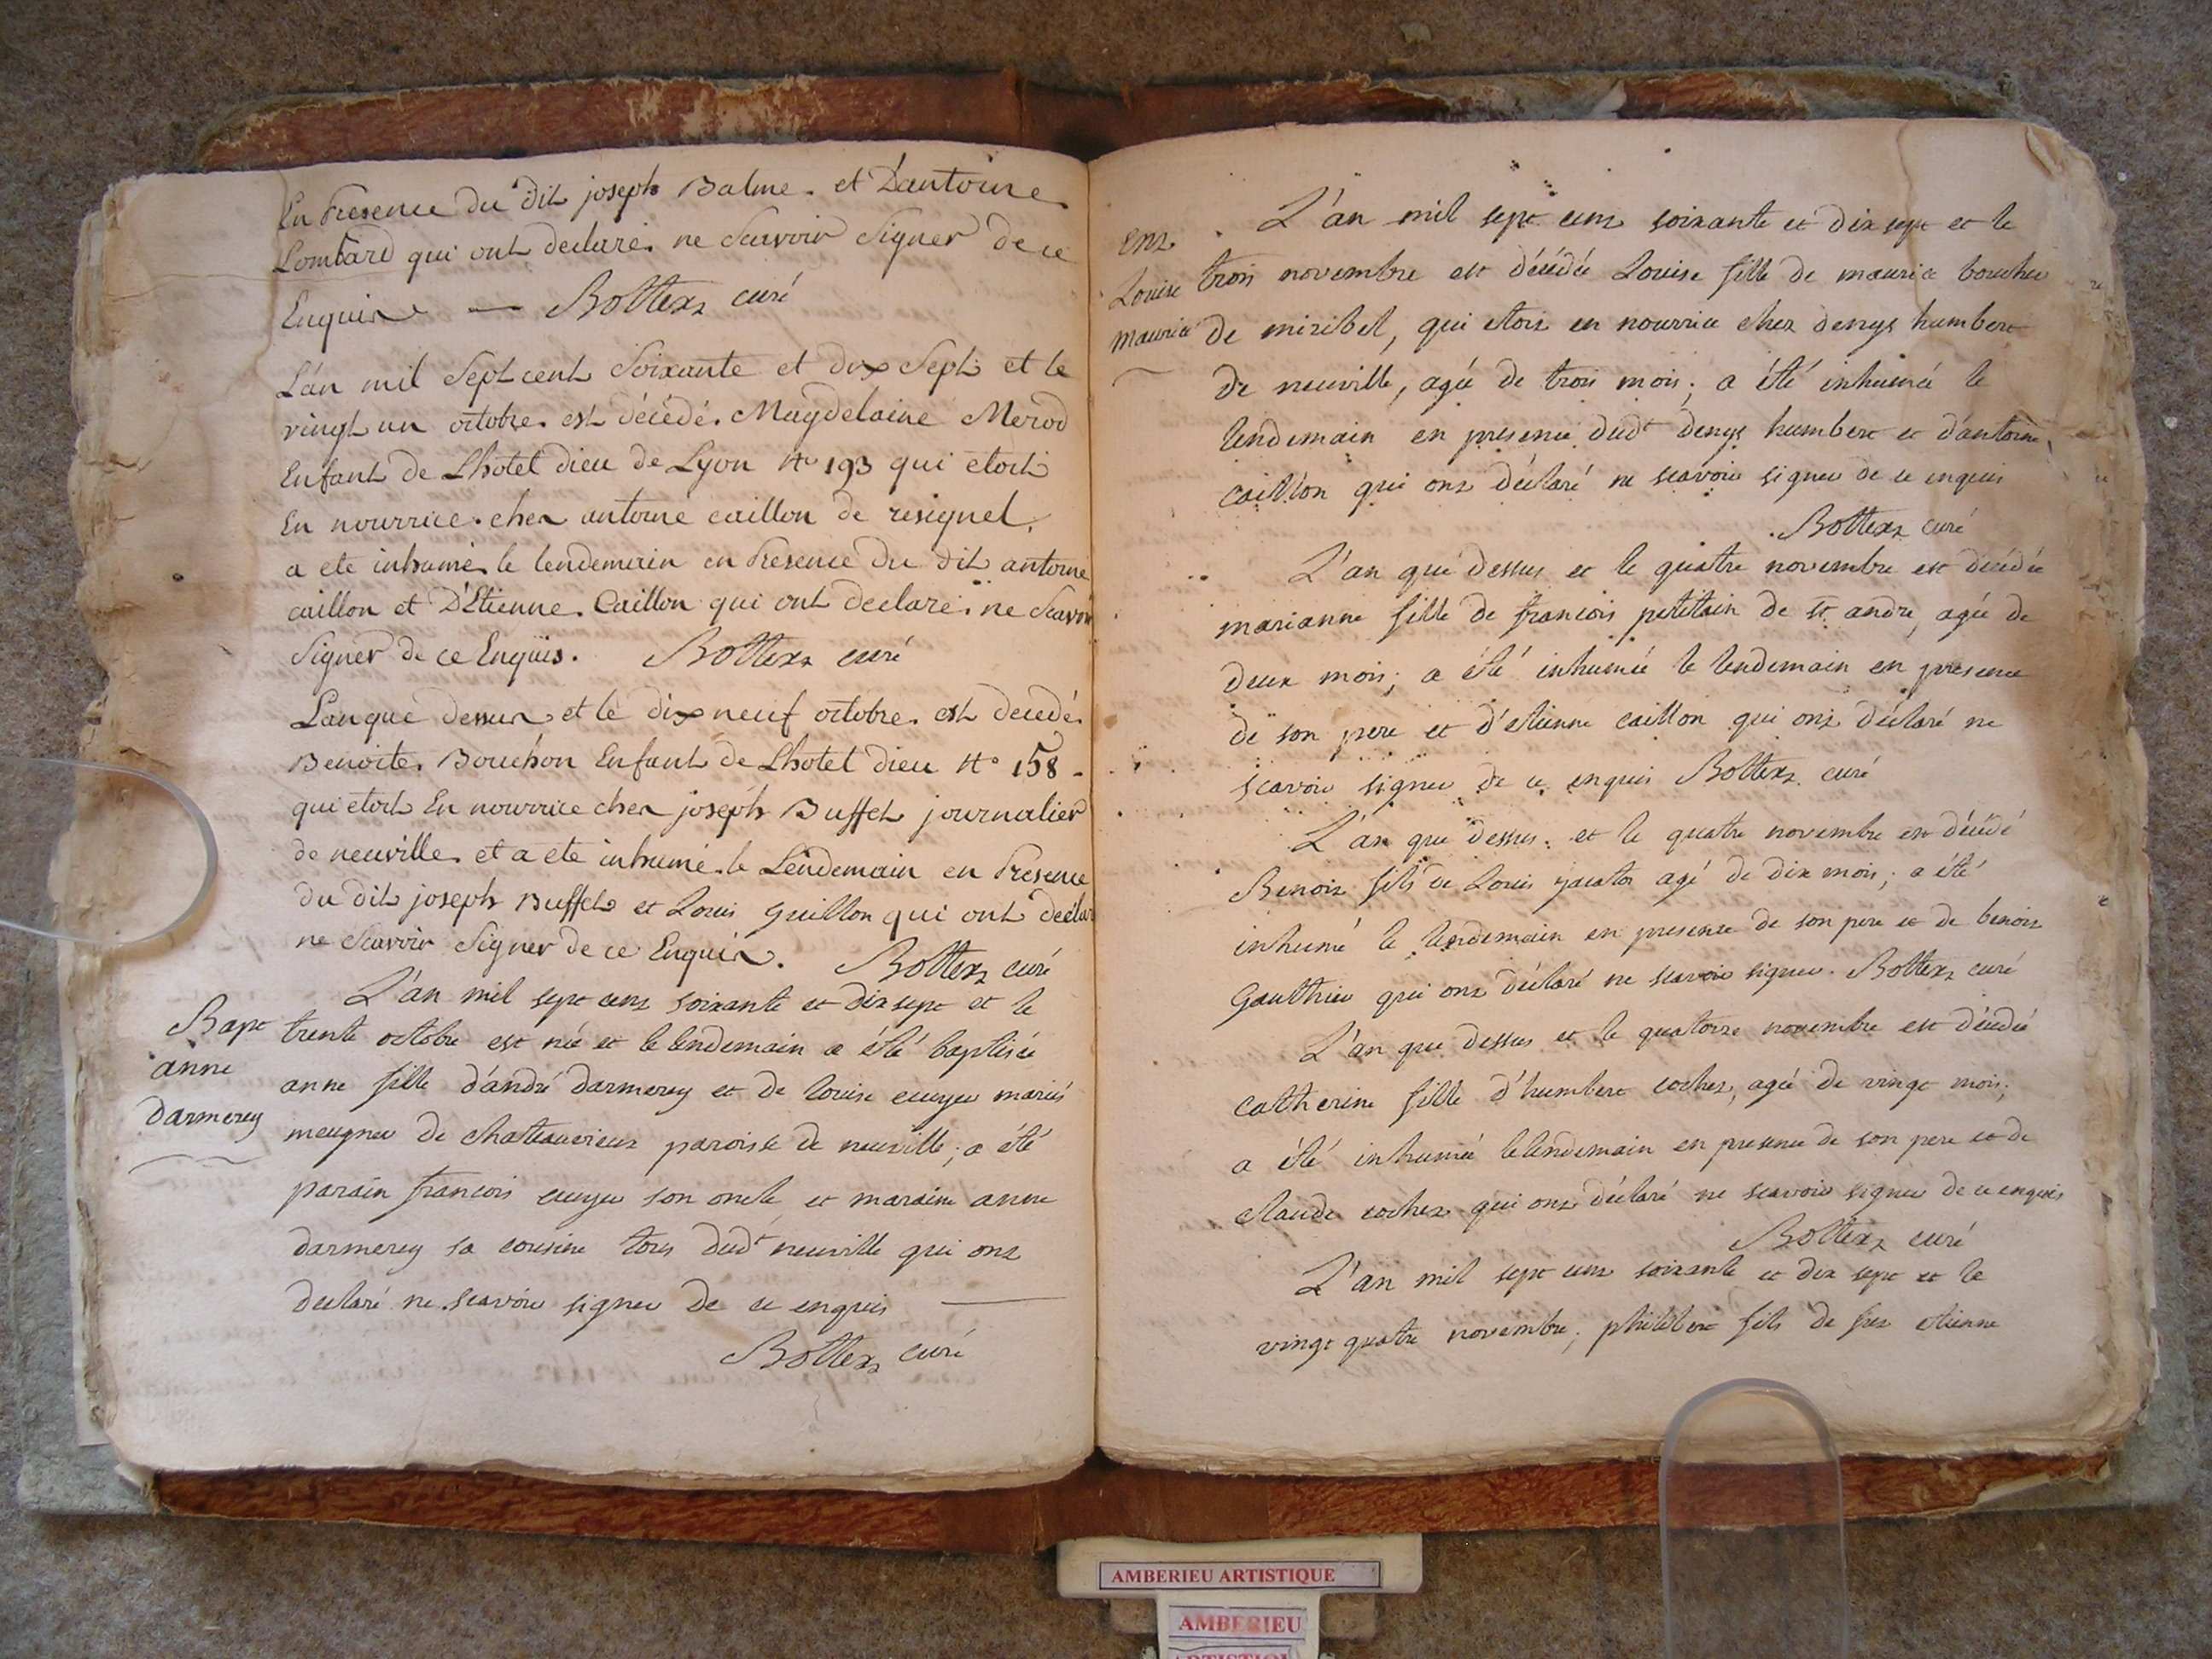 En Presence du dit joseph Balme. et D'antoine
Lombard qui ont declaré. ne Scavoir Signer de ce
Enquis — Bottex curé
L'an mil Sept cent Soixante et dix Sept et le
vingt un octobre. est décédé. Magdelaine Merod
Enfant de L'hotel dieu de Lyon No 193 qui etoit
En nourrice. chez antoine caillon de resignel,
a ete inhumé. le lendemain en Presence du dit antoine
caillon et D'Etienne. Caillon qui ont declaré. ne Scavoir
Signer de ce Enquis. Bottex curé
L'an que dessus et le dix neuf octobre. est decedé.
Benoite. Bouchon Enfant de L'hotel dieu No 158.
qui etoit En nourrice chez joseph Buffet journalier
de neuville. et a ete inhumé. le Lendemain en Presence
du dit joseph Buffet et Louis Guillon qui ont déclaré
ne Scavoir Signer de ce Enquis. Bottex curé
Bapt
anne
darmerey
L'an mil sept cens soixante et dix sept et le
trente octobre est née et le lendemain a été baptisée
anne fille d'andré darmerey et de louise cuyer mariés
meugner de chateauvieux paroisse de neuville; a été
parain francois cuyer son oncle et maraine anne
darmerey sa cousine tous dudt neuville qui ons
declaré ne scavoir signer de ce enquis —
Bottex curé
Ent.
Louise
maurice
L'an mil sept cens soixante et dix sept et le
trois novembre est décédée Louise fille de maurice boucher
de miribel, qui etois en nourrice chez denys humbert
de neuville, agée de trois mois; a été inhumée le
lendemain en presence dudt denys humbert et d'antoine
caillon qui ons déclaré ne scavoir signer de ce enquis
Bottex curé
L'an que dessus et le quatre novembre est décédée
marianne fille de francois petitain de st andre, agée de
deux mois; a été inhumée le lendemain en presence
de son pere et d'etienne caillon qui ons déclaré ne
scavoir signer de ce enquis Bottex curé
L'an que dessus. et le quatre novembre est décédé
Benois fils de Louis agé de dix mois; a été
inhumé le lendemain en presence de son pere et de benois
Gauthier qui ons déclaré ne scavoir signer. Bottex curé
L'an que dessus et le quatorze novembre est décédée
catherine fille d'humbert cochet, agée de vingt mois;
a été inhumée le lendemain en presence de son pere et de
claude cochet qui ons déclaré ne scavoir signer de ce enquis
Bottex curé
L'an mil sept cens soixante et dix sept et le
vingt quatre novembre; philibert fils de etienne
AMBERIEU ARTISTIQUE
AMBERIEU
ARTISTIQUE